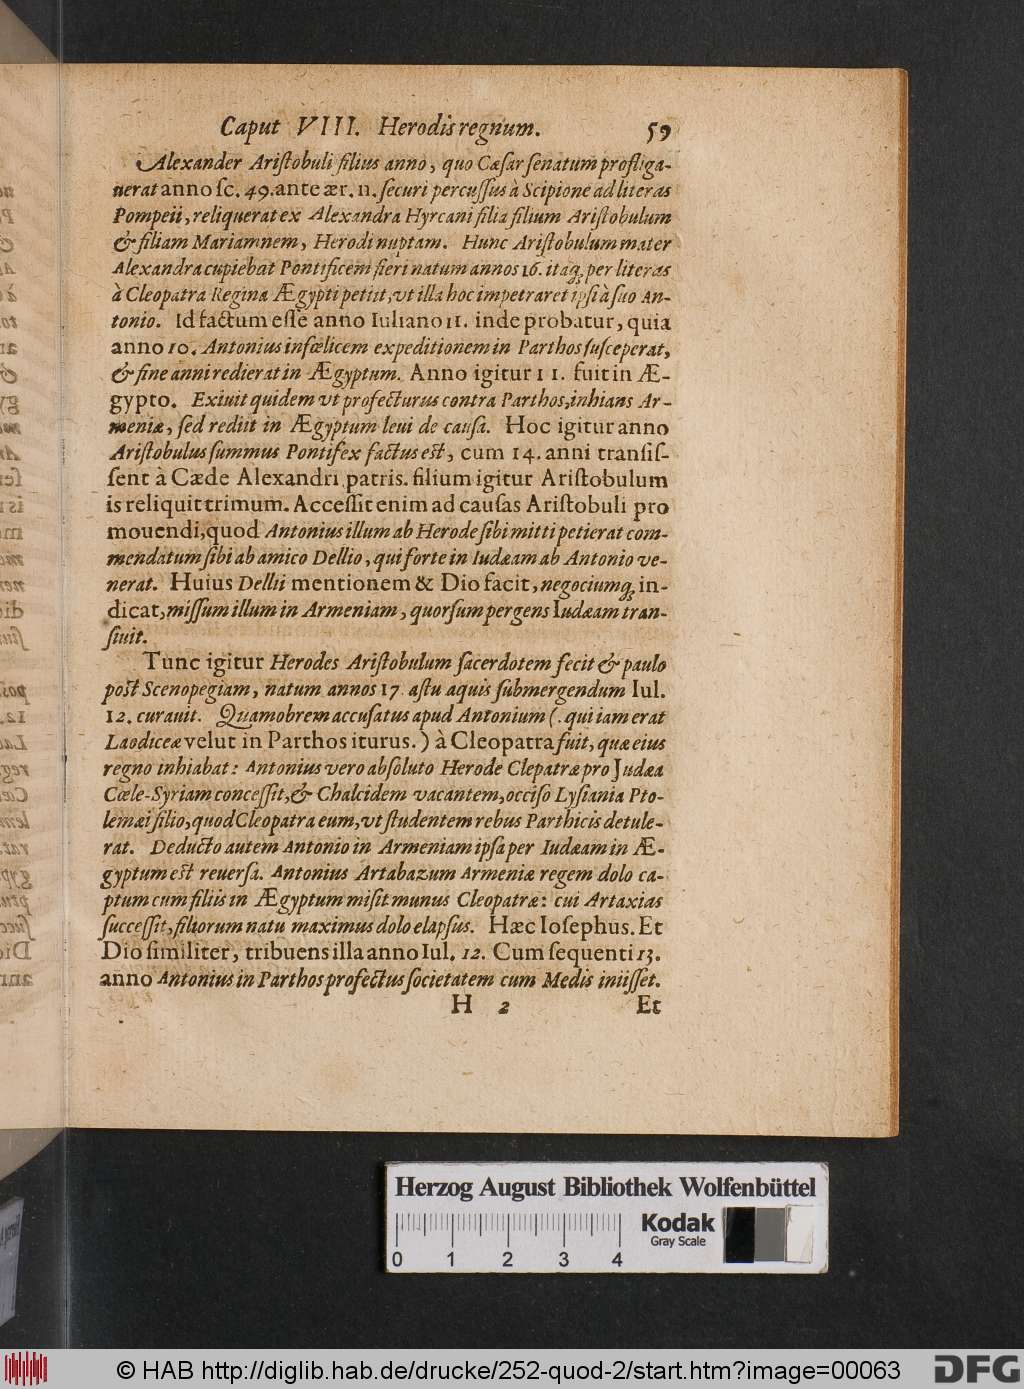 Caput VIII. Herodis regnum. 59
Alexander Aristobuli filius anno, quo Cæsar senatum profliga-
uerat anno sc. 49. ante ær. n. securi percussus à Scipione ad literas
Pompeii, reliquerat ex Alexandra Hyrcani filia filium Aristobulum
& filiam Mariamnem, Herodi nuptam. Hunc Aristobulum mater
Alexandra cupiebat Pontificem fieri natum annos 16. itaq; per literas
à Cleopatra Regina Ægypti petiit, vt illa hoc impetraret ipsi à suo An-
tonio. Id factum esse anno Iuliano 11. inde probatur, quia
anno 10. Antonius infœlicem expeditionem in Parthos susceperat,
& fine anni redierat in Ægyptum. Anno igitur 11. fuit in Æ-
gypto. Exiuit quidem vt profecturus contra Parthos, inhians Ar-
meniæ, sed rediit in Ægyptum leui de causa. Hoc igitur anno
Aristobulus summus Pontifex factus est, cum 14. anni transis-
sent à Cæde Alexandri patris. filium igitur Aristobulum
is reliquit trimum. Accessit enim ad causas Aristobuli pro
mouendi, quod Antonius illum ab Herode sibi mitti petierat com-
mendatum sibi ab amico Dellio, qui forte in Iudæam ab Antonio ve-
nerat. Huius Dellii mentionem & Dio facit, negociumq; in-
dicat, missum illum in Armeniam, quorsum pergens Iudæam tran-
siuit.
Tunc igitur Herodes Aristobulum sacerdotem fecit & paulo
post Scenopegiam, natum annos 17. astu aquis submergendum Iul.
12. curauit. Quamobrem accusatus apud Antonium (. qui iam erat
Laodiceæ velut in Parthos iturus.) à Cleopatra fuit, quæ eius
regno inhiabat: Antonius vero absoluto Herode Clepatræ pro Judæa
Cœle-Syriam concessit, & Chalcidem vacantem, occiso Lysiania Pto-
lemæi filio, quod Cleopatra eum, vt studentem rebus Parthicis detule-
rat. Deducto autem Antonio in Armeniam ipsa per Iudæam in Æ-
gyptum est reuersa. Antonius Artabazum Armeniæ regem dolo ca-
ptum cum filiis in Ægyptum misit munus Cleopatræ: cui Artaxias
successit, filiorum natu maximus dolo elapsus. Hæc Iosephus. Et
Dio similiter, tribuens illa anno Iul. 12. Cum sequenti 13.
anno Antonius in Parthos profectus societatem cum Medis iniisset.
H 2 Et
Herzog August Bibliothek Wolfenbüttel
Kodak
Gray Scale
0 1 2 3 4
© HAB http://diglib.hab.de/drucke/252-quod-2/start.htm?image=00063
DFG